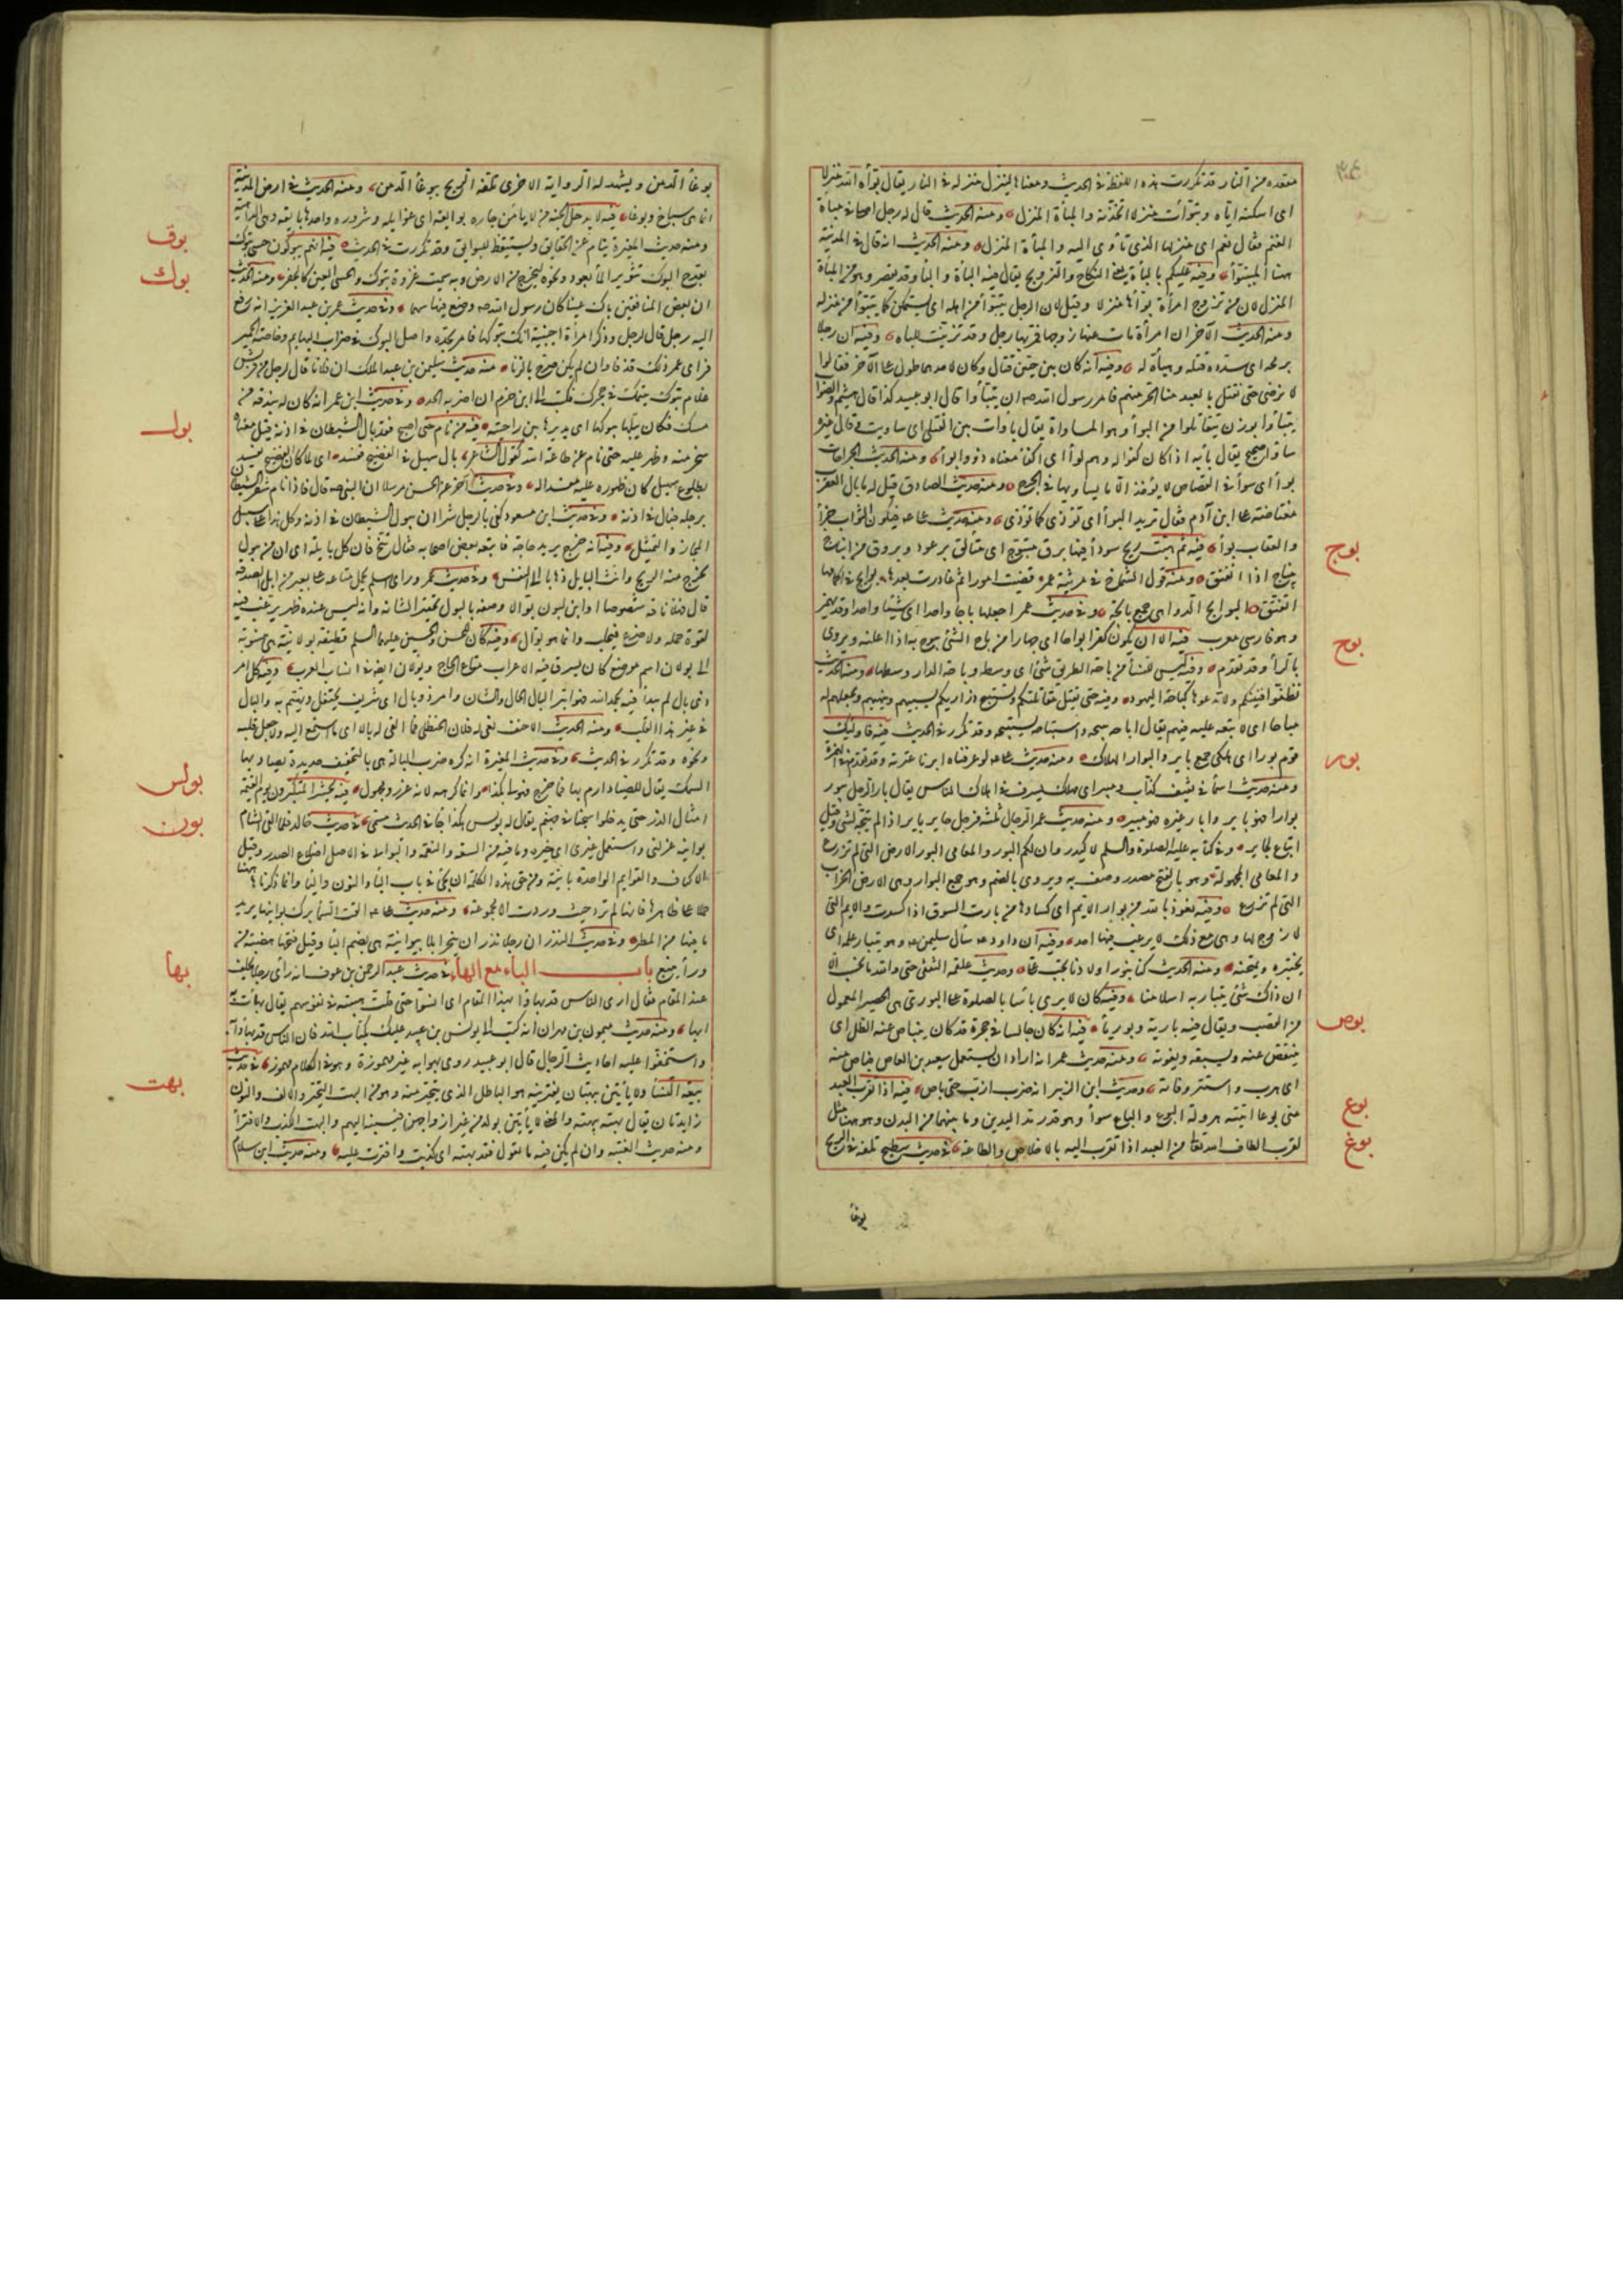 مقعده من النار قد تكررت هذه اللفظة في الحديث ومعناها لينزل منزله في النار يقال بوأه الله منزلا
اى اسكنه اياه وتبوأت منزلا اتخذته والمبأة المنزل ومنه الحديث قال له رجل اصلى في مباة
الغنم فقال نعم اى منزلها الذى تأوى اليه والمبأة المنزل ومنه الحديث انه قال في المدينة
ههنا المتبوأ وفيه عليكم بالباءة يعنى النكاح والتزويج يقال فيه الباءة والباء وقد يقصر وهو من المبأة
المنزل لان من تزوج امرأة بوأها منزلا وقيل لان الرجل يتبوأ من اهله اى يستمكن كما يتبوأ من منزله
ومنه الحديث الآخر ان امرأة مات عنها زوجها فمر بها رجل وقد تزينت للباه وفيه ان رجلا
برمحه اى سدده قبله وهيأه له وفيه انه كان بين حيين قتال وكان لاحدهما طول على الآخر فقالوا
لا نرضى حتى نقتل بالعبد منا الحر منهم فامر رسول الله صه ان يتباأوا قال ابو عبيد كذا قال هشيم والصواب
يتباوأوا بوزن يتقاتلوا من البواء وهو المساواة يقال باوأت بين القتلى اى ساويت وقال غيره
يتباأوا صحيح يقال باء به اذا كان كفوا له وهم بواء اى اكفاء معناه ذوو بواء ومنه الحديث الجراحات
بواء اى سواء في القصاص لا يؤخذ الا ما يساويها في الجرح ومنه حديث الصادق قيل له ما بال العقرب
مغتاظة على ابن آدم فقال تريد البواء اى تؤذى كما تؤذى ومنه حديث على عه فيكون الثواب جزاء
والعقاب بواء فيه ثم هبت ريح سوداء فيها برق متبوج اى متألق برعود وبروق من انباج
ينباج اذا انفتق ومنه قول الشماخ في مرثية عمر قضيت امورا ثم غادرت بعدها بوايج في اكمامها
لم تفتق البوايج الدواهى جمع بايجة وفي حديث عمر اجعلها باجا واحدا اى شيئا واحدا وقد يهمز
وهو فارسى معرب فيه الا ان يكون كفرا بواحا اى جهارا من باح الشئ يبوح به اذا اعلنه ويروى
بالراء وقد تقدم وفيه ليس للنساء من باحة الطريق شئ اى وسطه وباحة الدار وسطها ومنه الحديث
نظفوا افنيتكم ولا تدعوها كباحة اليهود وفيه حتى نقتل مقاتلتكم ونستبيح ذراريكم اى نسبيهم ونجعلهم له
مباحا اى لا تبعة عليه فيهم يقال اباحه يبيحه واستباحه يستبيحه وقد تكرر في الحديث فيه فاولئك
قوم بور اى هلكى جمع باير والبوار الهلاك ومنه حديث على عه لو عرفناه ابرنا عترته وقد تقدم في الهمزة
ومنه حديث اسماء في ثقيف كذاب ومبير اى مهلك يسرف في اهلاك الناس يقال بار الرجل يبور
بوارا فهو باير وابار غيره فهو مبير ومنه حديث عمر الرجال ثلثة فرجل حاير باير اذا لم يتجه لشئ وقيل
اتباع لحاير وفي كتابه عليه الصلوة والسلم لاكيدر وان لكم البور والمعامى البور الارض التى لم تزرع
والمعامى المجهولة وهو بالفتح مصدر وصف به ويروى بالضم وهو جمع البوار وهى الارض الخراب
التى لم تزرع وفيه نعوذ بالله من بوار الايم اى كسادها من بارت السوق اذا كسدت والايم التى
لا زوج لها وهى مع ذلك لا يرغب فيها احد وفيه ان داود عه سأل سليمن عه وهو يبتار علمه اى
يختبره ويمتحنه ومنه الحديث كنا نبور اولادنا بحب على وحديث علقمة الثقفى حتى والله ما نحسب الا
ان ذاك شئ يبتار به اسلامنا وفيه كان لا يرى باسا بالصلوة على البورى هى الحصير المعمول
من القصب ويقال فيه بارية وبورياء فيه انه كان جالسا في حجرة قد كان ينباص عنه الظل اى
ينتقص عنه ويسبقه ويفوته ومنه حديث عمر انه اراد ان يستعمل سعيد بن العاص فباص منه
اى هرب واستتر وفاته وحديث ابن الزبير انه ضرب ازب حتى باص فيه اذا تقرب العبد
منى بوعا اتيته هرولة البوع والباع سواء وهو قدر مد اليدين وما بينهما من البدن وهو ههنا مثل
لقرب الطاف الله تعالى من العبد اذا تقرب اليه بالاخلاص والطاعة في حديث سطيح تلفه في الريح
بوغاء
بوج
بوح
بور
بوص
بوع
بوغ
بوغاء الدمن ويشهد له الرواية الاخرى تلفه الريح ببوغاء الدمن ومنه الحديث في ارض المدينة
انما هى سباخ وبوغاء فيه لا يدخل الجنة من لا يامن جاره بوايقه اى غوايله وشروره واحدها بايقة وهى الداهية
ومنه حديث المغيرة ينام عن الحقايق ويستيقظ للبوايق وقد تكررت في الحديث فيه انهم يبوكون حسى تبوك
بقدح البوك تثوير الماء بعود ونحوه ليخرج من الارض وبه سميت غزوة تبوك والحسى العين كالحفر ومنه الحديث
ان بعض المنافقين باك عينا كان رسول الله صه وضع فيها سهما وفي حديث عمر بن عبد العزيز انه رفع
اليه رجل قال لرجل وذكر امرأة اجنبية انك تبوكها فامر بحده واصل البوك في ضراب البهايم وخاصة الحمير
فراى عمر ذلك قذفا وان لم يكن صرح بالزنا منه حديث سليمن بن عبد الملك ان فلانا قال لرجل من قريش
علام تبوك يتيمتك في حجرك فكتب الى ابن حزم ان اضربه الحد وفي حديث ابن عمر انه كان له بندقة من
مسك فكان يبلها ثم يبوكها اى يديرها بين راحتيه فيه من نام حتى اصبح فقد بال الشيطان في اذنه قيل معناه
سخر منه وظهر عليه حتى نام عن طاعة الله كقول الشاعر بال سهيل في الفضيخ ففسد اى لما كان الفضيخ يفسد
بطلوع سهيل كان ظهوره عليه مفسدا له وفي حديث آخر عن الحسن مرسلا ان النبى صه قال فاذا نام شغر الشيطان
برجله فبال في اذنه وفي حديث ابن مسعود كفى بالرجل شرا ان يبول الشيطان في اذنه وكل هذا على سبيل
المجاز والتمثيل وفيه انه خرج يريد حاجة فاتبعه بعض اصحابه فقال تنح فان كل بايلة اى ان من يبول
يخرج منه الريح وانث البايل ذهابا الى النفس وفي حديث عمر وراى اسلم يحمل متاعه على بعير من ابل الصدقة
قال فهلا ناقة شصوصا او ابن لبون بوالا وصفه بالبول تحقيرا لشانه وانه ليس عنده ظهر يرغب فيه
لقوة حمله ولا ضرع فيحلب وانما هو بوال وفيه كان للحسن والحسين عليهما السلم قطيفة بولانية هى منسوبة
الى بولان اسم موضع كان يسرق فيه الاعراب متاع الحاج وبولان ايضا في انساب العرب وفيه كل امر
ذى بال لم يبدأ فيه بحمد الله فهو ابتر البال الحال والشان وامر ذو بال اى شريف يحتفل ويهتم به والبال
في غير هذا القلب ومنه الحديث الاحنف نعى له فلان الحنظلى فما القى له بالا اى ما استمع اليه ولا جعل قلبه
نحوه وقد تكرر في الحديث وفي حديث المغيرة انه كره ضرب البالة هى بالتخفيف حديدة يصاد بها
السمك يقال للصياد ارم بها فما خرج فهو لى بكذا وانما كرهه لانه غرر ومجهول فيه يحشر المتكبرون يوم القيمة
امثال الذر حتى يدخلوا سجنا في جهنم يقال له بولس هكذا جاء في الحديث مسمى في حديث خالد فلما القى الشام
بوانيه عزلنى واستعمل غيرى اى خيره وما فيه من السعة والنعمة والبوانى في الاصل اضلاع الصدر وقيل
الاكتاف والقوايم الواحدة بانية ومن حق هذه الكلمة ان تجئ في باب الباء والنون والياء وانما ذكرناها ههنا
حملا على ظاهرها فانها لم ترد حيث وردت الا مجموعة ومنه حديث على عه القت السماء برك بوانيها يريد
ما فيها من المطر وفي حديث النذر ان رجلا نذر ان ينحر ابلا ببوانة هى بضم الباء وقيل فتحها هضبة من
وراء ينبع باب الباء مع الهاء في حديث عبد الرحمن بن عوف انه رأى رجلا يحلف
عند المقام فقال ارى الناس قد بهاوا بهذا المقام اى انسوا حتى قلت هيبته في نفوسهم يقال بهأت به
ابها ومنه حديث ميمون بن مهران انه كتب الى يونس بن عبيد عليك بكتاب الله فان الناس قد بهاوا به
واستخفوا عليه احاديث الرجال قال ابو عبيد روى بهوا به غير مهموزة وهو في الكلام مهموز في حديث
بيعة النساء ولا يأتين ببهتان يفترينه هو الباطل الذى يتحير منه وهو من البهت التحير والالف والنون
زايدتان يقال بهته يبهته والمعنى لا يأتين بولد من غير ازواجهن فينسبنه اليهم والبهت الكذب والافتراء
ومنه حديث الغيبة وان لم يكن فيه ما تقول فقد بهته اى كذبت وافتريت عليه ومنه حديث ابن سلام
بوق
بوك
بول
بولس
بون
بها
بهت